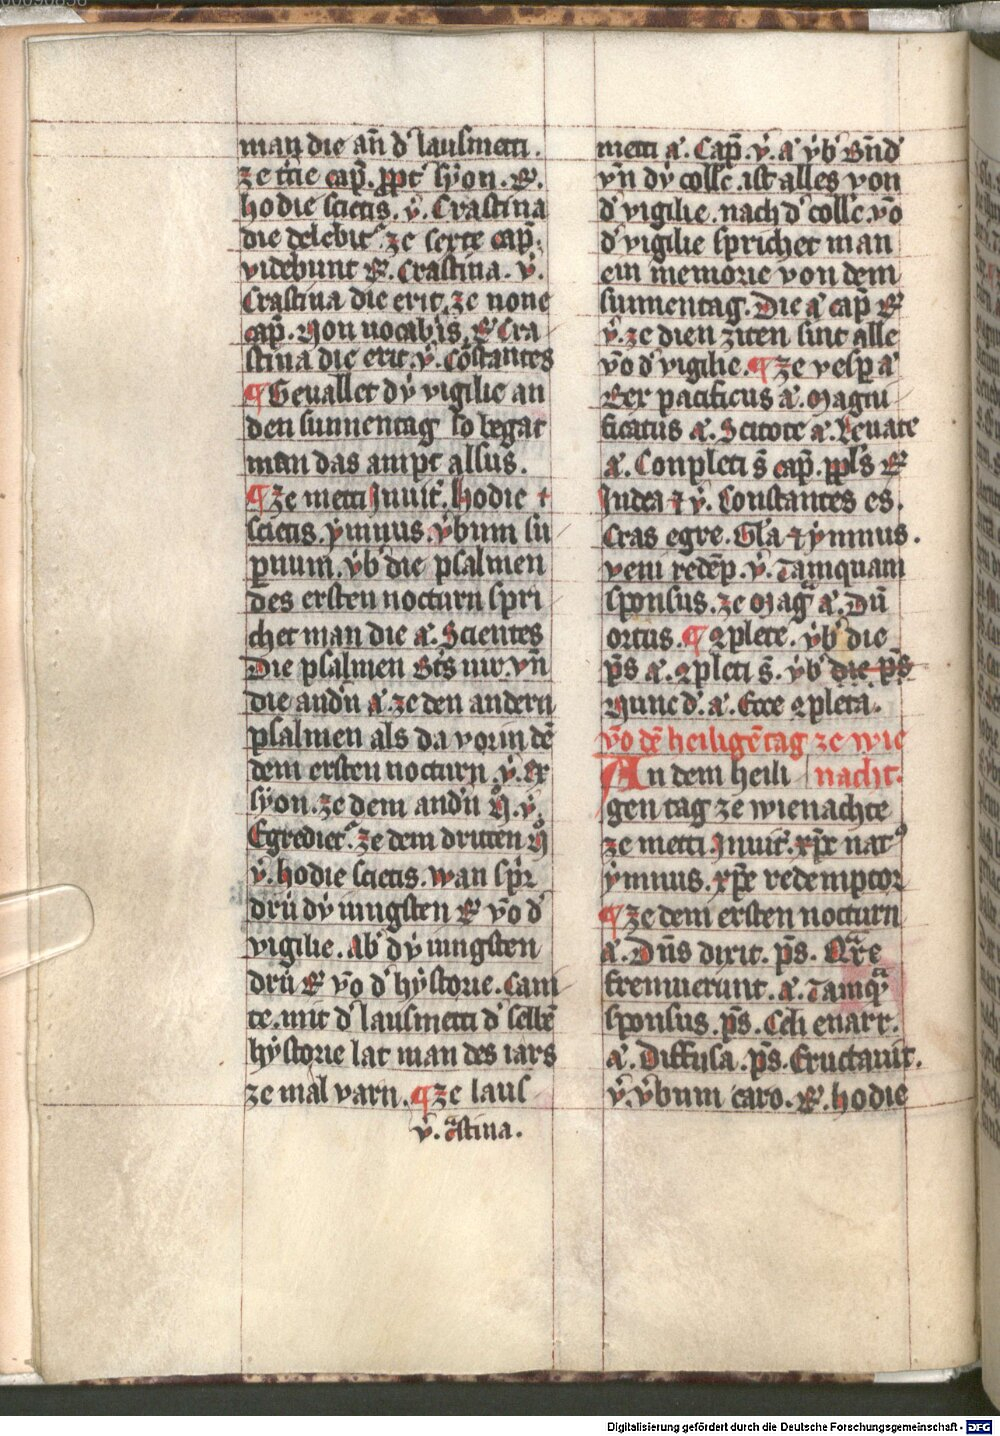 man die an̄ d' lausmetti.
ze t̓cie cap̄. ꝓpt̓ sẏon. R̸.
hodie scietis. v̓. Crastina
die delebit᷑. ze sexte cap̄.
videbunt R̸. Crastina. v̓.
Crastina die erit. ze none
cap̄. Non uocab̓is. R̸ Cra
stina die erit. v̓. Cōstantes
¶ Geuallet dv̓ vigilie an
den sunnentag so begat
man das ampt alsus.
¶ Ze metti Inuit̓. hodie ⁊
scietis. ẏmnus. v̓bum su
ꝑnum. v̓b' die psalmen
des ersten nocturn spri
chet man die a̓. Scientes
Die psalmen Gt̄s nir. vn̄
die and̓n a̓. ze den andern
psalmen als da vor in dē
dem ersten nocturn. v̓. Ex
sẏon. ze dem and̓n N̊. v̓.
Egrediet᷑. ze dem dritten N̊
v̓. hodie scietis. wan sp̄r
drü dv̓ iungsten R̸ vō d'
vigilie. Ab' dv̓ iungsten
drü R̸ vō d' hẏstorie. Cani
te. mit d' lausmetti d' selbē
hẏstorie lat man des iars
ze mal varn. ¶ ze laus
v̓. c͛stina.
metti a̓. Cap̄. v̓. a̓ v̓b' Bn̄d'
vn̄ dv̓ coll̓c. ist alles von
d' vigilie. nach d' coll̓c. vō
d' vigilie sprichet man
ein memorie von dem
sunnentag. Die a̓ cap̄ R̸
v̓. ze dien ziten sint alle
vō d' vigilie. ¶ ze vesꝑ a̓
Rex pacificus a̓. Magni
ficatus a̓. Scitote a̓. Leuate
a̓. Conpleti s̄ cap̄. ppl̓s R̸
Iudea ⁊ v̓. Constantes es.
Cras egre. Gl̓a ⁊ ẏmnus.
veni redēp. v̓. Tamquam
sponsus. ze Mag̓ a̓. Dū
ortus. ¶ ꝯplete. v̓b' die
ps̄ a̓. ꝯpleti s̄. v̓b' die ps̄
Nunc d̓. a̓. Ecce ꝯpleta.
vō dē heiligē tag ze wie
An dem heili nacht.
gen tag ze wienachte
ze metti. Inuit̓. xp̄c nat᷒
ẏmnus. xp̄e redemptor
¶ ze dem ersten nocturn
a̓. Dn̄s dixit. ps̄. Qͣre
fremuerunt. a̓. Tamqͣ
sponsus. ps̄. Celi enarr.
a̓. Diffusa. ps̄. Eructauit.
v̓. v̓bum caro. R̸. hodie
Digitalisierung gefördert durch die Deutsche Forschungsgemeinschaft - DFG